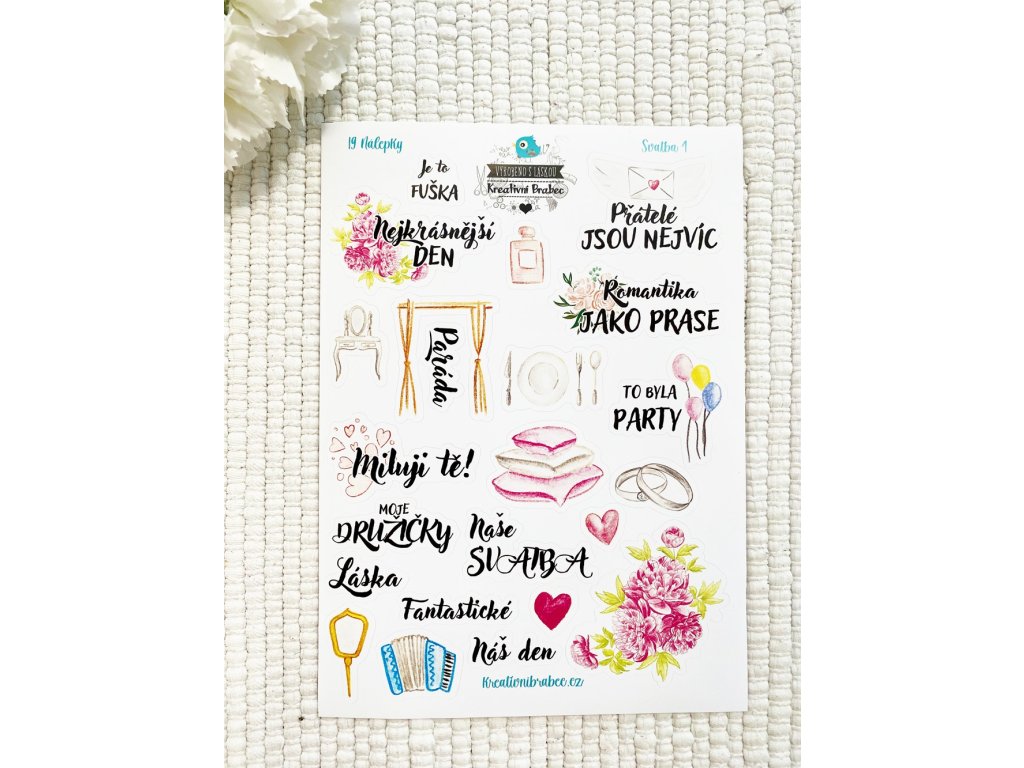 19 Nálepky
Svatba 1
VYROBENO S LÁSKOU
Kreativní Brabec
Je to
FUŠKA
Přátelé
JSOU NEJVÍC
Nejkrásnější
DEN
Romantika
JAKO PRASE
Paráda
TO BYLA
PARTY
Miluji tě!
MOJE
DRUŽIČKY
Naše
SVATBA
Láska
Fantastické
Náš den
Kreativnibrabec.cz